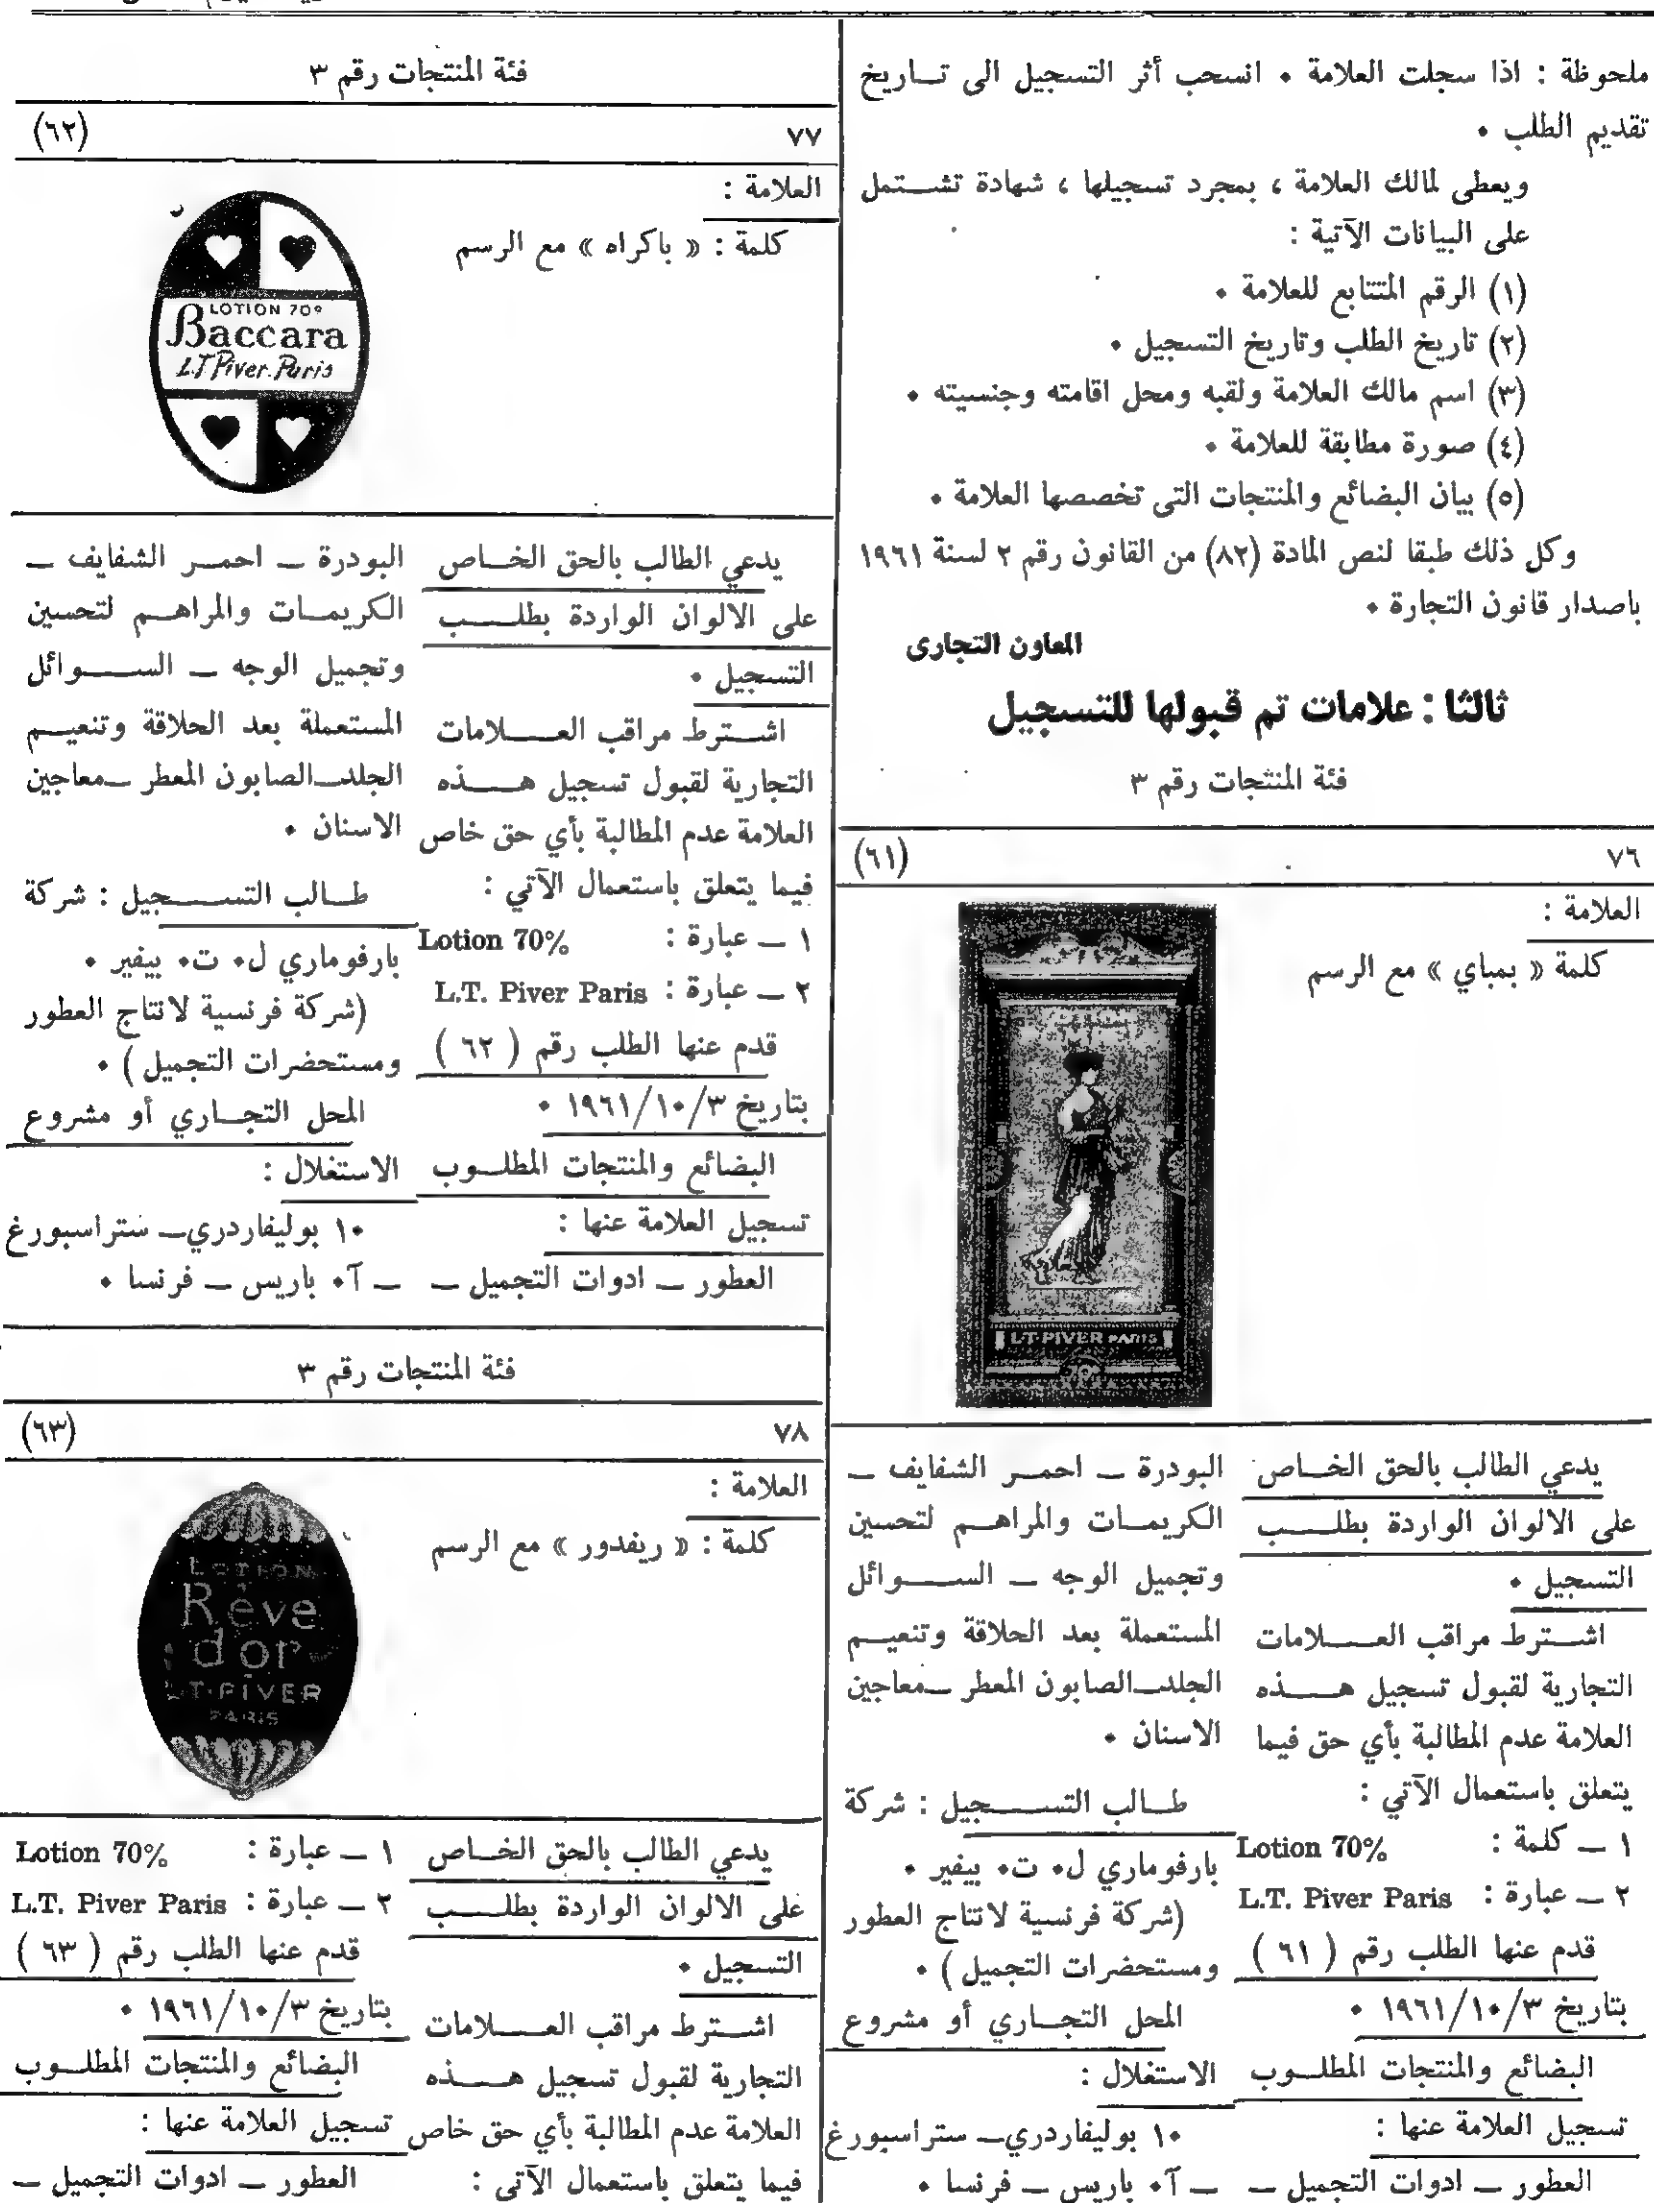 ملحوظة : اذا سجلت العلامة ٠ انسحب أثر التسجيل الى تـــاريخ
تقديم الطلب ٠
ويعطى لمالك العلامة ، بمجرد تسجيلها ، شهادة تشـــتمل
على البيانات الآتية :
(١) الرقم المتتابع للعلامة ٠
(٢) تاريخ الطلب وتاريخ التسجيل ٠
(٣) اسم مالك العلامة ولقبه ومحل اقامته وجنسيته ٠
(٤) صورة مطابقة للعلامة ٠
(٥) بيان البضائع والمنتجات التى تخصصها العلامة ٠
وكل ذلك طبقا لنص المادة (٨٢) من القانون رقم ٢ لسنة ١٩٦١
باصدار قانون التجارة ٠
المعاون التجارى
ثالثا : علامات تم قبولها للتسجيل
فئة المنتجات رقم ٣
٧٦ (٦١)
العلامة :
كلمة « بمباي » مع الرسم
L.T. PIVER PARIS
يدعي الطالب بالحق الخــاص
على الالوان الواردة بطلـــــب
التسجيل ٠
اشـــترط مراقب العـــــلامات
التجارية لقبول تسجيل هـــــذه
العلامة عدم المطالبة بأي حق فيما
يتعلق باستعمال الآتي :
١ ــ كلمة : Lotion 70%
٢ ــ عبارة : L.T. Piver Paris
قدم عنها الطلب رقم ( ٦١ )
بتاريخ ١٩٦١/١٠/٣ ٠
البضائع والمنتجات المطلـــوب
تسجيل العلامة عنها :
العطور ــ ادوات التجميل ــ
البودرة ــ احمـــر الشفايف ــ
الكريمــات والمراهـــم لتحسين
وتجميل الوجه ــ الســـــوائل
المستعملة بعد الحلاقة وتنعيـــم
الجلدــالصابون المعطر ــمعاجين
الاسنان ٠
طـــالب التســـــجيل : شركة
بارفوماري ل٠ ت٠ بيفير ٠
(شركة فرنسية لانتاج العطور
ومستحضرات التجميل ) ٠
المحل التجــاري أو مشروع
الاستغلال :
١٠ بوليفاردري ــ ستراسبورغ
ــ آ٠ باريس ــ فرنسا ٠
فئة المنتجات رقم ٣
٧٧ (٦٢)
العلامة :
كلمة : « باكراه » مع الرسم
LOTION 70°
Baccara
L.T. Piver. Paris
يدعي الطالب بالحق الخــاص
على الالوان الواردة بطلـــــب
التسجيل ٠
اشـــترط مراقب العـــــلامات
التجارية لقبول تسجيل هـــــذه
العلامة عدم المطالبة بأي حق خاص
فيما يتعلق باستعمال الآتي :
١ ــ عبارة : Lotion 70%
٢ ــ عبارة : L.T. Piver Paris
قدم عنها الطلب رقم ( ٦٢ )
بتاريخ ١٩٦١/١٠/٣ ٠
البضائع والمنتجات المطلـــوب
تسجيل العلامة عنها :
العطور ــ ادوات التجميل ــ
البودرة ــ احمـــر الشفايف ــ
الكريمــات والمراهـــم لتحسين
وتجميل الوجه ــ الســـــوائل
المستعملة بعد الحلاقة وتنعيـــم
الجلدــالصابون المعطر ــمعاجين
الاسنان ٠
طـــالب التســـــجيل : شركة
بارفوماري ل٠ ت٠ بيفير ٠
(شركة فرنسية لانتاج العطور
ومستحضرات التجميل ) ٠
المحل التجــاري أو مشروع
الاستغلال :
١٠ بوليفاردري ــ ستراسبورغ
ــ آ٠ باريس ــ فرنسا ٠
فئة المنتجات رقم ٣
٧٨ (٦٣)
العلامة :
كلمة : « ريفدور » مع الرسم
LOTION
Rêve
d'or
L.T. PIVER
PARIS
يدعي الطالب بالحق الخــاص
على الالوان الواردة بطلـــــب
التسجيل ٠
اشـــترط مراقب العـــــلامات
التجارية لقبول تسجيل هـــــذه
العلامة عدم المطالبة بأي حق خاص
فيما يتعلق باستعمال الآتي :
١ ــ عبارة : Lotion 70%
٢ ــ عبارة : L.T. Piver Paris
قدم عنها الطلب رقم ( ٦٣ )
بتاريخ ١٩٦١/١٠/٣ ٠
البضائع والمنتجات المطلـــوب
تسجيل العلامة عنها :
العطور ــ ادوات التجميل ــ